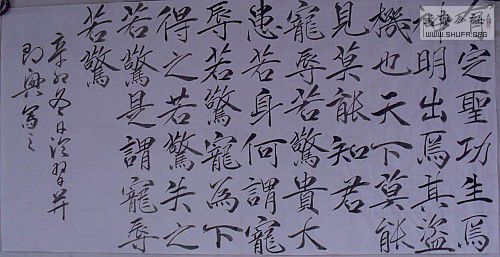 有定聖功生焉
神明出焉其盜
機也天下莫能
見莫能知君
寵辱若驚貴大
患若身何謂寵
辱若驚寵為下
得之若驚失之
若驚是謂寵辱
若驚
辛卯冬日臨習并
即興寫之
WWW.SHUFA.ORG